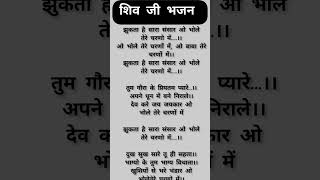 शिव जी भजन
झुकता है सारा संसार ओ भोले
तेरे चरणो में...।।
ओ भोले तेरे चरणों में, ओ बाबा तेरे
चरणों में।।
झुकता है सारा संसार ओ भोले
तेरे चरणो में...।।
तुम गौरा के प्रियतम प्यारे..।।
अपने धून में बने निराले।।
देव करे जय जयकार ओ
भोले तेरे चरणों में
झुकता है सारा संसार ओ भोले
तेरे चरणो में...।।
दुख सुख सारे तू ही सहता।।
भाग्यो के तुम भाग्य विधाता।।
खुशियों से भरे भंडार ओ
भोले तेरे चरणों में।।